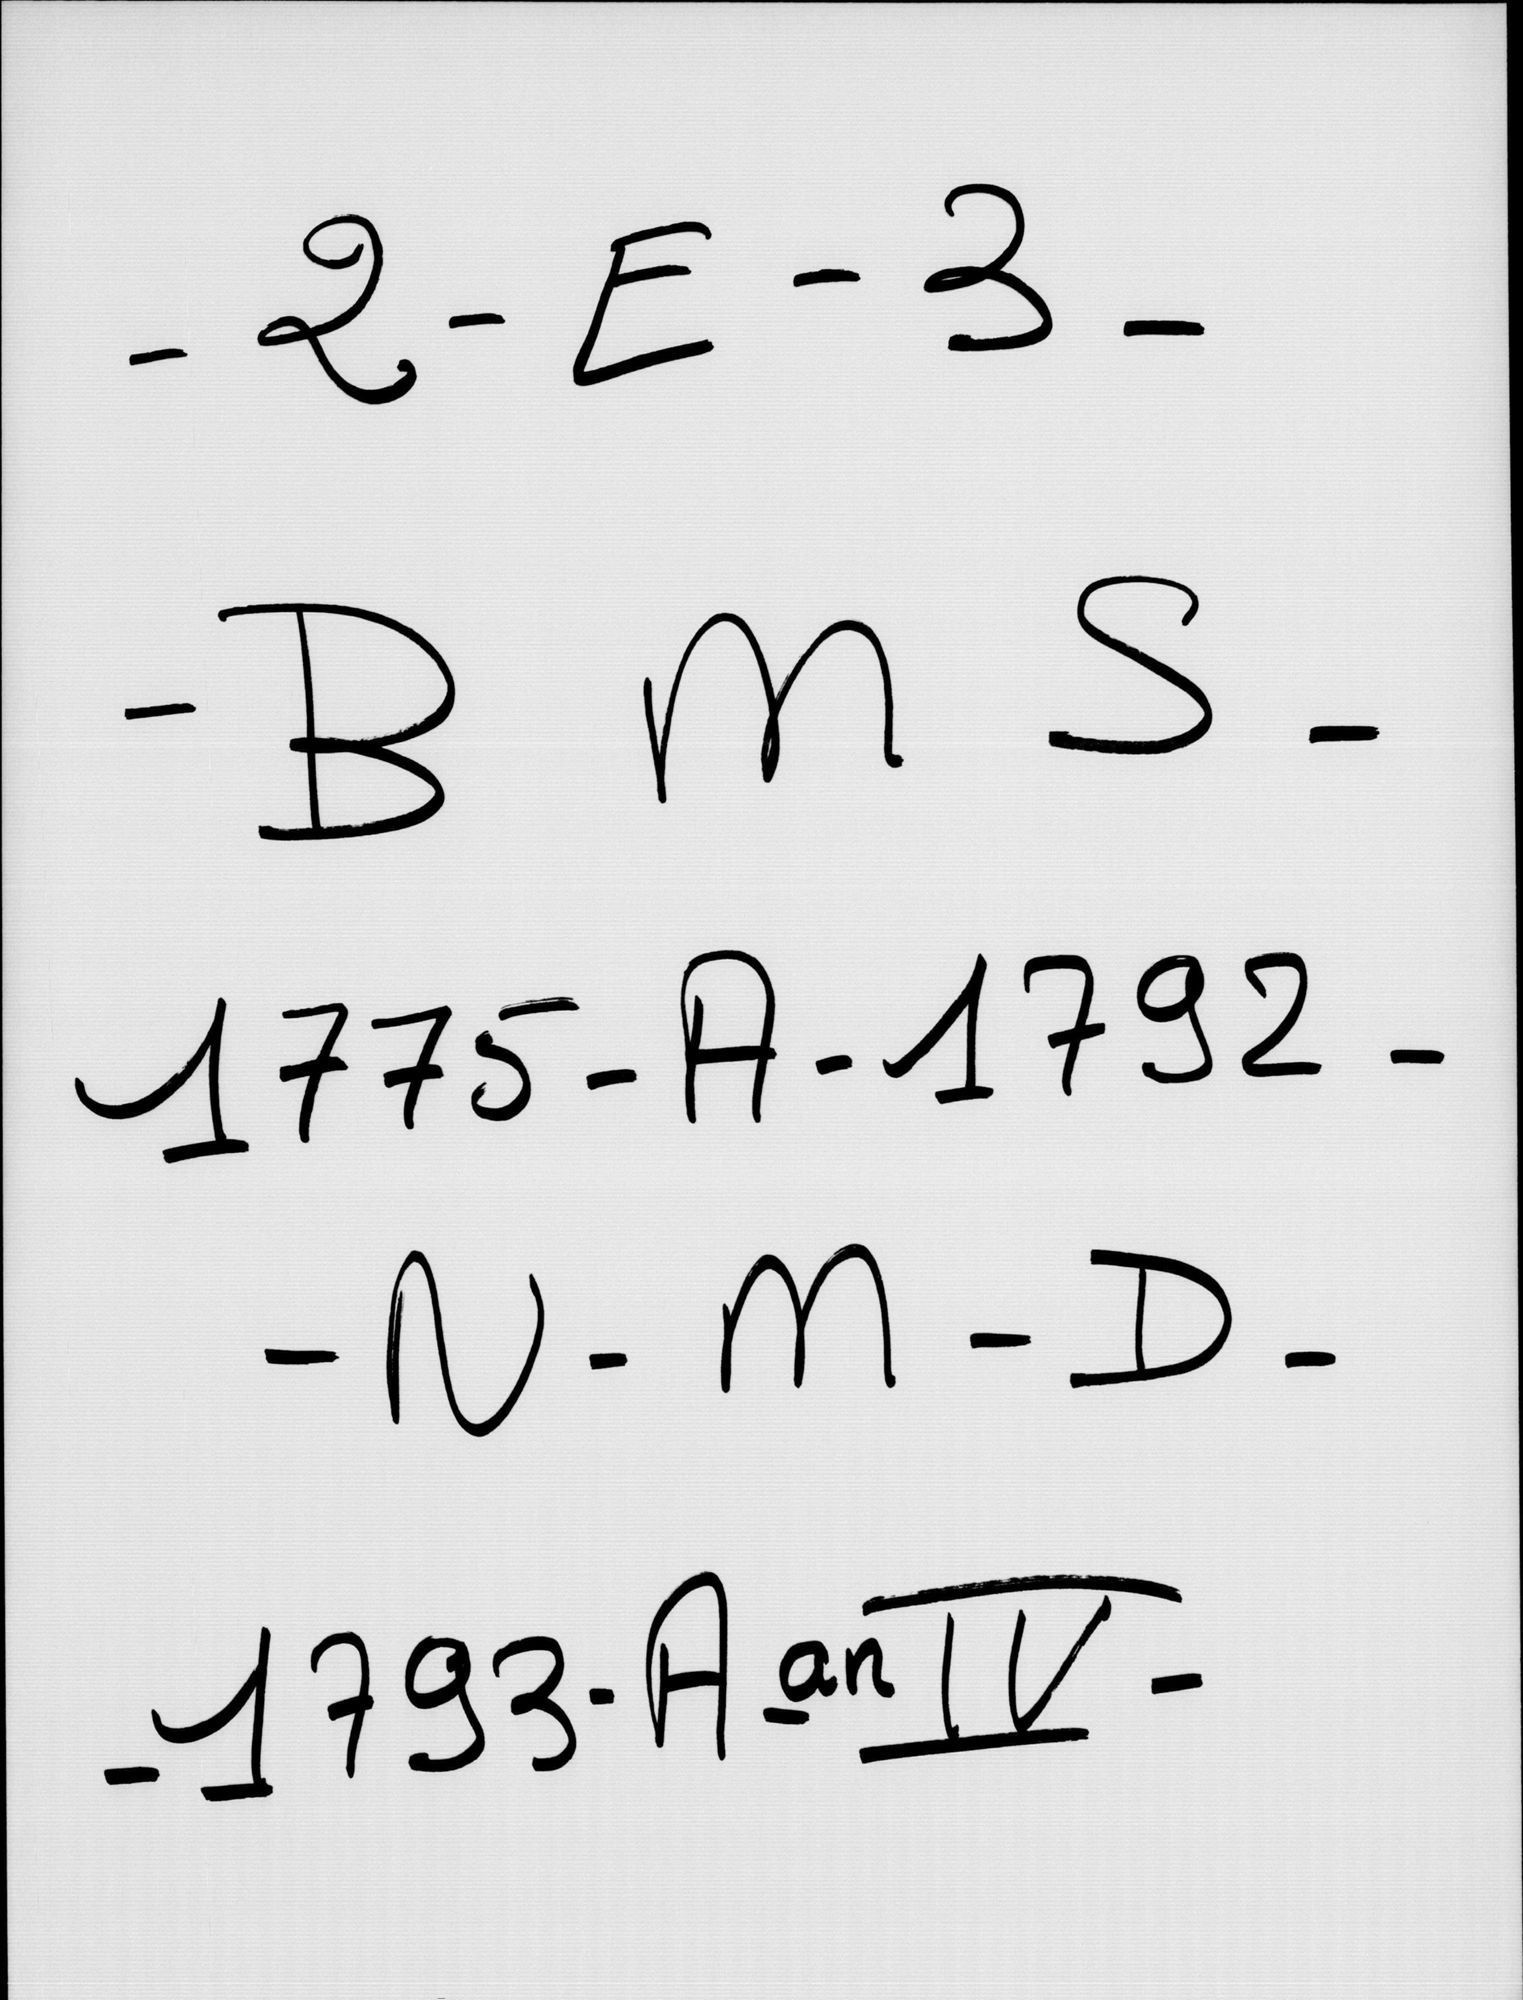 - 2 - E - 3 -
- B M S -
1775 - A - 1792 -
- N - M - D -
- 1793 - A - an IV -